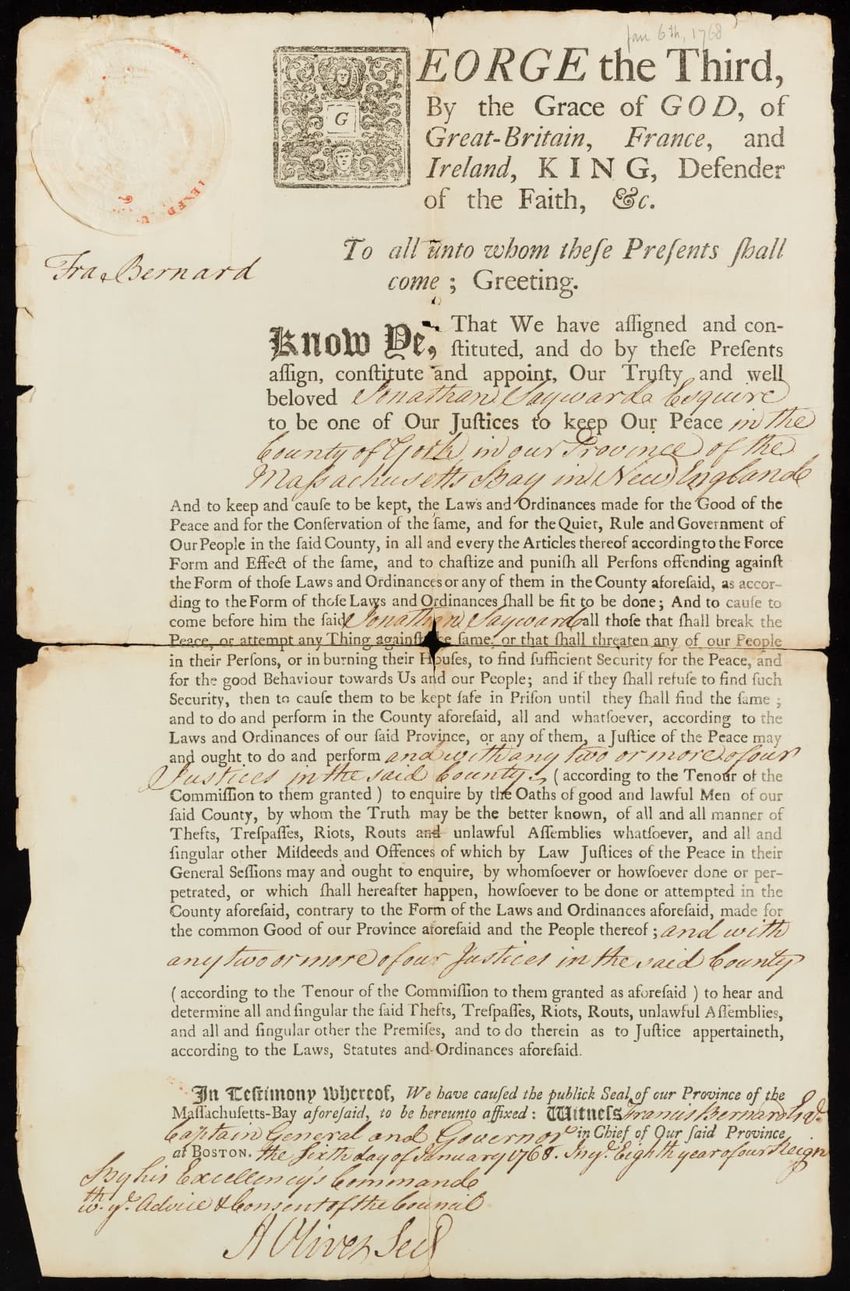 Jan 6th, 1768
GEORGE the Third,
By the Grace of GOD, of
Great-Britain, France, and
Ireland, KING, Defender
of the Faith, &c.
Fra Bernard
To all unto whom theſe Preſents ſhall
come ; Greeting.
Know Ye, That We have aſſigned and con-
ſtituted, and do by theſe Preſents
aſſign, conſtitute and appoint, Our Truſty and well
beloved Jonathan Sayward Esquire
to be one of Our Juſtices to keep Our Peace in the
County of York in our Province of the
Maſsachusetts Bay in New England
And to keep and cauſe to be kept, the Laws and Ordinances made for the Good of the
Peace and for the Conſervation of the ſame, and for the Quiet, Rule and Government of
Our People in the ſaid County, in all and every the Articles thereof according to the Force
Form and Effect of the ſame, and to chaſtize and puniſh all Perſons offending againſt
the Form of thoſe Laws and Ordinances or any of them in the County aforeſaid, as accor-
ding to the Form of thoſe Laws and Ordinances ſhall be fit to be done; And to cauſe to
come before him the ſaid Jonathan Sayward all thoſe that ſhall break the
Peace, or attempt any Thing againſt the ſame, or that ſhall threaten any of our People
in their Perſons, or in burning their Houſes, to find ſufficient Security for the Peace, and
for the good Behaviour towards Us and our People; and if they ſhall refuſe to find ſuch
Security, then to cauſe them to be kept ſafe in Priſon until they ſhall find the ſame ;
and to do and perform in the County aforeſaid, all and whatſoever, according to the
Laws and Ordinances of our ſaid Province, or any of them, a Juſtice of the Peace may
and ought to do and perform and with any two or more of our
Justices in the said County, ( according to the Tenour of the
Commiſſion to them granted ) to enquire by the Oaths of good and lawful Men of our
ſaid County, by whom the Truth may be the better known, of all and all manner of
Thefts, Treſpaſſes, Riots, Routs and unlawful Aſſemblies whatſoever, and all and
ſingular other Miſdeeds and Offences of which by Law Juſtices of the Peace in their
General Seſſions may and ought to enquire, by whomſoever or howſoever done or per-
petrated, or which ſhall hereafter happen, howſoever to be done or attempted in the
County aforeſaid, contrary to the Form of the Laws and Ordinances aforeſaid, made for
the common Good of our Province aforeſaid and the People thereof ; and with
any two or more of our Justices in the said County
( according to the Tenour of the Commiſſion to them granted as aforeſaid ) to hear and
determine all and ſingular the ſaid Thefts, Treſpaſſes, Riots, Routs, unlawful Aſſemblies,
and all and ſingular other the Premiſes, and to do therein as to Juſtice appertaineth,
according to the Laws, Statutes and Ordinances aforeſaid.
In Teſtimony whereof, We have cauſed the publick Seal of our Province of the
Maſſachuſetts-Bay aforeſaid, to be hereunto affixed: Witneſs Francis Bernard Esqr.
Captain General and Governor in Chief of Our ſaid Province
at BOSTON. the Sixth day of January 1768. In ye. Eighth year of our Reign
By his Excellency's Command
wth. ye. Advice & Consent of the Council
A Oliver Secy